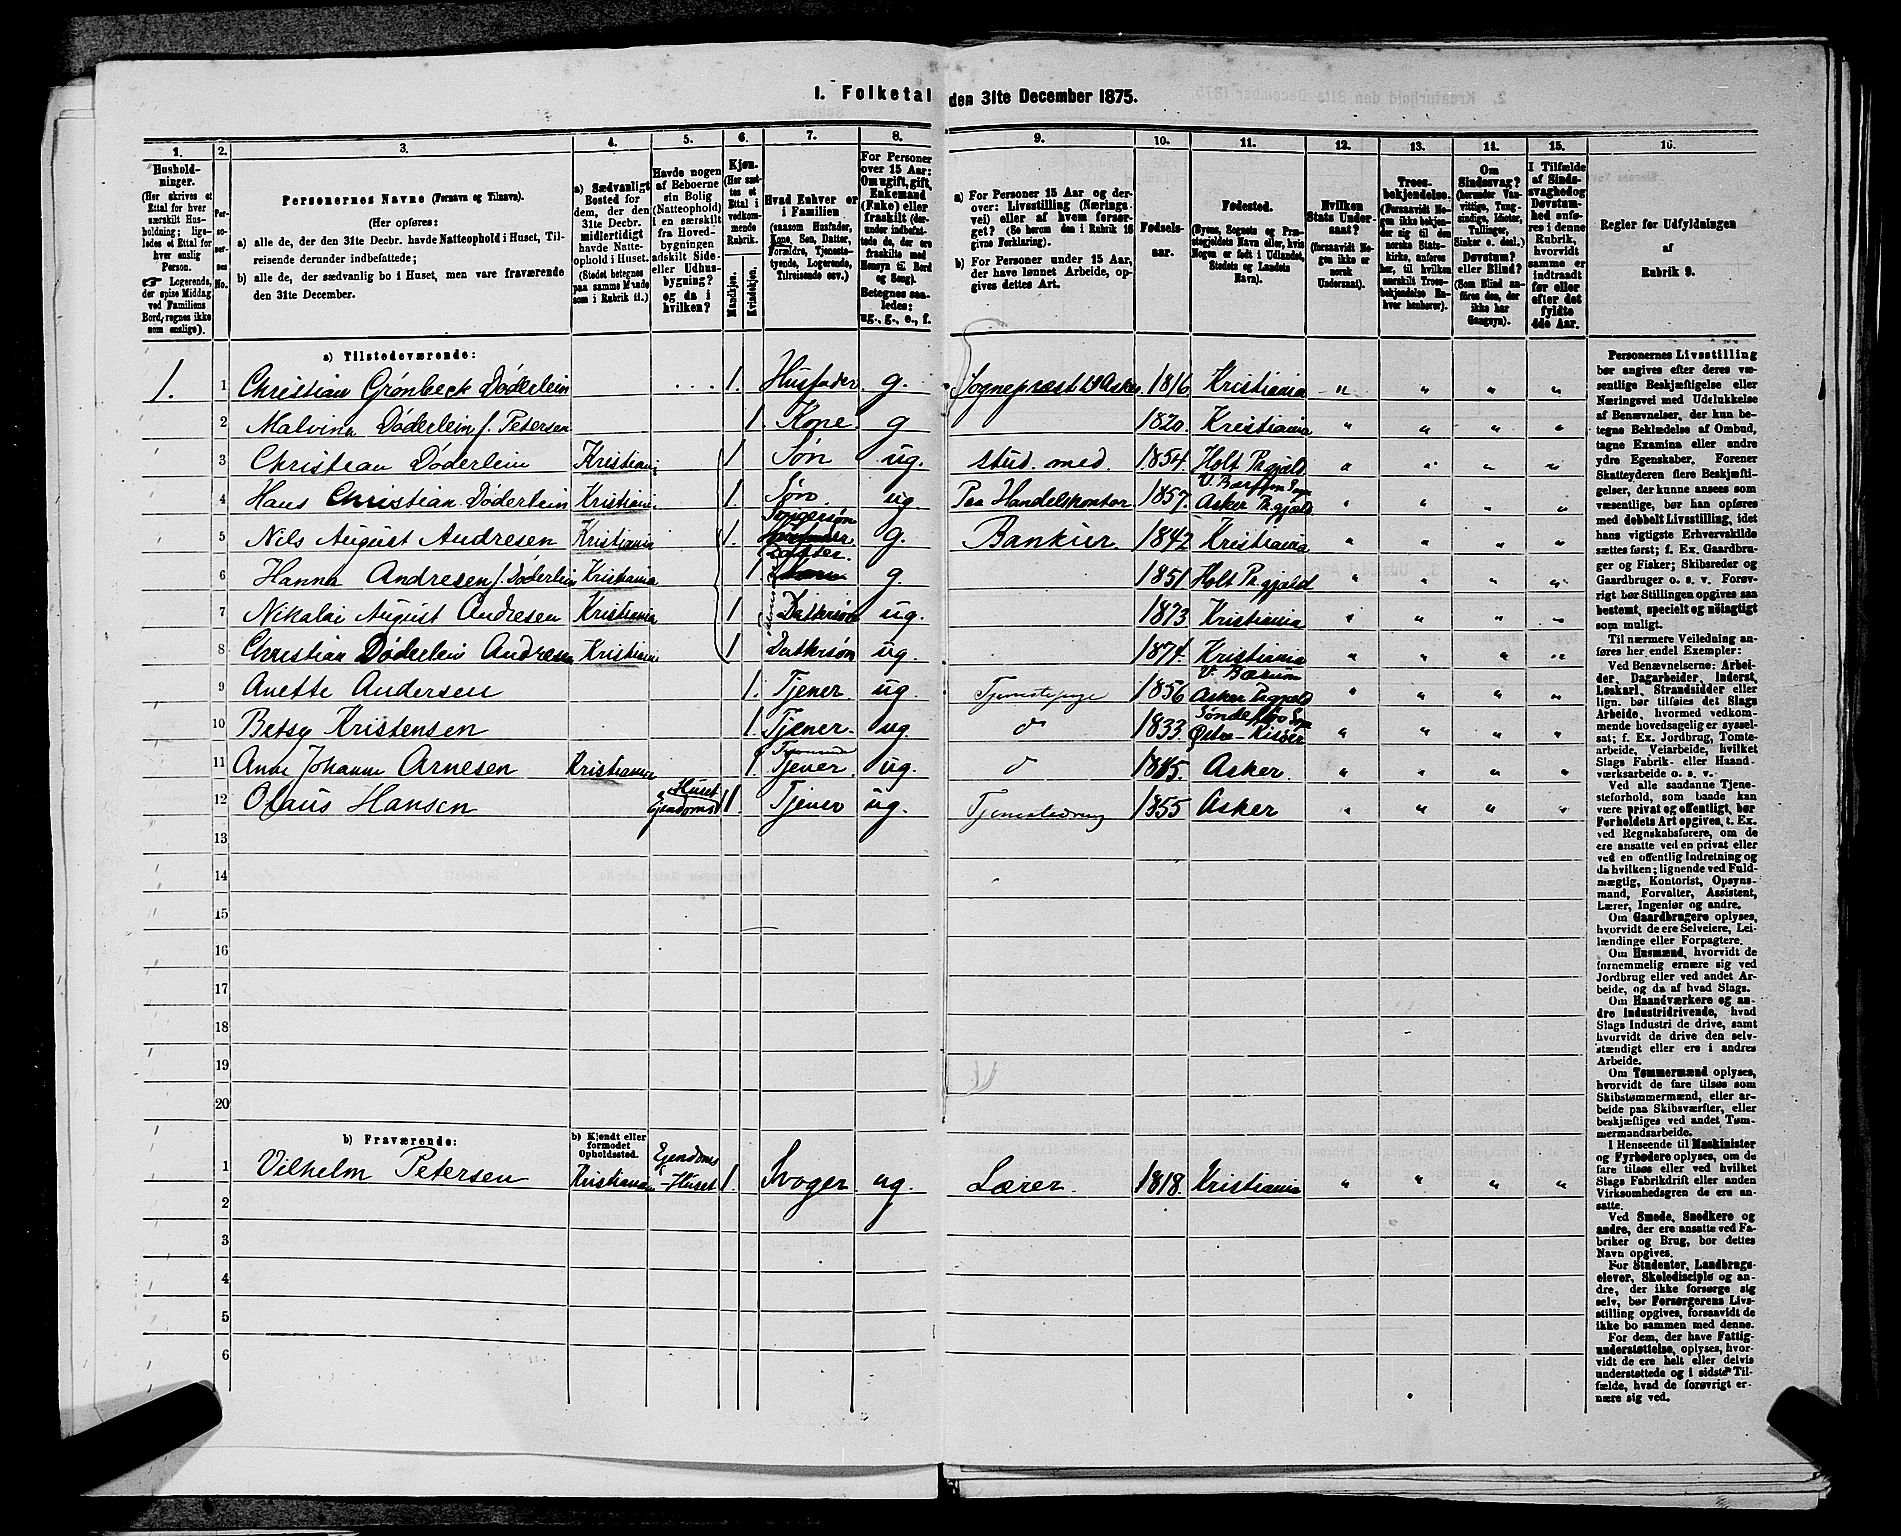 1. Folketal den 31te December 1875.
1. 2. 3. 4. 5. 6. 7. 8. 9. 10. 11. 12. 13. 14. 15. 16.
Hushold-
ninger.
(Her skrives et
Ettal for hver
særskilt Hus-
holdning; lige-
ledes et Ettal for
hver enslig
Person.
☞ Logerende,
der spise Middag
ved Familiens
Bord, regnes ikke
som enslige).
Per-
so-
ner-
nes
No.
Personernes Navne (Fornavn og Tilnavn).
(Her opføres:
a) alle de, der den 31te Decbr. havde Natteophold i Huset, Til-
reisende derunder indbefattede;
b) alle de, der sædvanlig bo i Huset, men vare fraværende
den 31te December.
a) Sædvanligt
Bosted for
dem, der den
31te Decbr.
midlertidigt
havde Natte-
ophold i Huset.
(Stedet betegnes
paa samme Maade
som i Rubrik 11.)
Havde nogen
af Beboerne
sin Bolig
(Natteophold)
i en særskilt
fra Hoved-
bygningen
adskilt Side-
eller Udhus-
bygning?
og da i
hvilken?
Kjøn.
(Her sæt-
tes et
Ettal i
vedkom-
mende
Rubrik.
Mandkjøn.
Kvindekjøn.
Hvad Enhver er
i Familien
(saasom Husfader,
Kone, Søn, Datter,
Forældre, Tjeneste-
tyende, Logerende,
Tilreisende osv.)
For Personer
over 15 Aar:
Om ugift, gift,
Enkemand
(Enke) eller
fraskilt (der-
under indbefat-
tede de, der ere
fraskilte med
Hensyn til Bord
og Seng).
Betegnes saa-
ledes:
ug., g., e., f.
a) For Personer 15 Aar og der-
over: Livsstilling (Nærings-
vei) eller af hvem forsør-
get? (Se herom den i Rubrik 16
givne Forklaring).
b) For Personer under 15 Aar,
der have lønnet Arbeide, op-
gives dettes Art.
Fødsels-
aar.
Fødested.
(Byens, Sognets og Præ-
stegjeldets Navn eller, hvis
Nogen er født i Udlandet,
Stedets og Landets
Navn).
Hvilken
Stats Under-
saat?
(forsaavidt No-
gen ikke er
norsk
Undersaat).
Troes-
bekjendelse.
(Forsaavidt No-
gen ikke bekjen-
der sig til den
norske Stats-
kirke, anføres
her, til hvilken
særskilt Troes-
bekjendelse En-
hver henhører).
Om
Sindssvag?
(herunder Van-
vittige, Tung-
sindige, Idioter,
Tullinger,
Sinker o. desl.)
Døvstum?
eller Blind?
(Som Blind an-
føres den, der
ikke har
Gangsyn).
I Tilfælde
af Sinds-
svaghed og
Døvstum-
hed anfø-
res i denne
Rubrik,
hvorvidt
samme er
indtraadt
før eller
efter det
fyldte
4de Aar.
Regler for Udfyldningen
af
Rubrik 9.
a) Tilstedeværende:
1. 1 Christian Grønbeck Døderlein 1. Husfader g. Sognepræst til Asker 1816 Kristiania " " " "
2 Malvina Døderlein f. Petersen 1. Kone g 1820. Kristiania " " " "
3 Christian Døderlein Kristiania 1 Søn ug. stud. med. 1854. Holt Pr.gjæld " " " "
4 Hans Christian Døderlein Kristiania 1. Søn ug. Paa Handelskontor 1857. Asker Pr.gjæld " " " "
5 Nils August Andresen Kristiania 1. Svigersøn g. Bankier. 1842 Kristiania " " " "
6 Hanna Andresen f. Døderlein Kristiania 1. Datter g. 1851 Holt Pr.gjæld " " " "
7 Nikolai August Andresen Kristiania 1 Dattersøn ug. 1873 Kristiania " " " "
8 Christian Døderlein Andresen Kristiania 1 Dattersøn ug. 1874. Kristiania " " " "
9 Anette Andersen 1. Tjener ug. Tjenestepige 1856 V. Bærum Asker Pr.gjæld " " " "
10 Betsy Kristensen 1 Tjener. ug. d 1833. Østre-Risøer " " " "
11 Anne Johanne Arnesen Kristiania 1. Tjener ug. d Asker. " " " "
12 Olaus Hansen Huset Ejendomed 1. Tjener ug. Tjenestedreng 1855 Asker " " " "
13
14
15
16
17
18
19
20
b) Fraværende:
b) Kjendt eller
formodet
Opholdssted.
1 Vilhelm Petersen Kristiania Ejendoms-Huset 1. Svoger. ug. Lærer. 1818. Kristiania " " " "
2
3
4
5
6
Personernes Livsstilling
bør angives efter deres væ-
sentlige Beskjæftigelse eller
Næringsvei med Udelukkelse
af Benævnelser, der kun be-
tegne Beklædelse af Ombud,
tagne Examina eller andre
ydre Egenskaber. Forener
Skatteyderen flere Beskjæfti-
gelser, der kunne ansees som
væsentlige, bør han opføres
med dobbelt Livsstilling, idet
hans vigtigste Erhvervskilde
sættes først; f. Ex. Gaardbru-
ger og Fisker; Skibsreder og
Gaardbruger o. s. v. Forøv-
rigt bør Stillingen opgives saa
bestemt, specielt og nøiagtigt
som muligt.
Til nærmere Veiledning an-
føres her endel Exempler:
Ved Benævnelserne: Arbei-
der, Dagarbeider, Inderst,
Løskarl, Strandsidder eller
lign. bør tilføies det Slags
Arbeide, hvormed vedkom-
mende hovedsagelig er syssel-
sat; f. Ex. Jordbrug, Tomte-
arbeide, Veiarbeide, hvilket
Slags Fabrik- eller Haand-
værksarbeide o. s. v.
Ved alle saadanne Tjene-
steforhold, som baade kan
være privat og offentligt, bør
Forholdets Art opgives, t. Ex.
ved Regnskabsførere, om de
ere ansatte ved en privat eller
ved en offentlig Indretning og
da hvilken; lignende ved Fuld-
mægtig, Kontorist, Opsyns-
mand, Forvalter, Assistent,
Lærer, Ingeniør og andre.
Om Gaardbrugere oplyses,
hvorvidt de ere Selveiere, Lei-
lændinge eller Forpagtere.
Om Husmænd, hvorvidt de
fornemmelig ernære sig ved
Jordbrug eller ved andet Ar-
beide, og da af hvad Slags.
Om Haandværkere og an-
dre Industridrivende, hvad
Slags Industri de drive, samt
hvorvidt de drive den selv-
stændigt eller ere i andres
Arbeide.
Om Tømmermænd oplyses,
hvorvidt de fare tilsøs som
Skibstømmermænd, eller ar-
beide paa Skibsværfter, eller
beskjæftiges ved andet Tøm-
mermandsarbeide.
I Henseende til Maskinister
og Fyrbødere oplyses, om de
fare tilsøs eller ved hvilket
Slags Fabrikdrift eller anden
Virksomhedsgren de ere an-
satte.
Ved Smede, Snedkere og
andre, der ere ansatte ved Fa-
briker og Brug, bør dettes
Navn opgives.
For Studenter, Landbrugs-
elever, Skoledisciple og an-
dre, der ikke forsørge sig
selv, bør Forsørgerens Livs-
stilling opgives, forsaavidt de
ikke bo sammen med denne.
For dem, der have Fattig-
understøttelse, oplyses, hvor-
vidt de ere helt eller delvis
understøttede og i sidste Til-
fælde, hvad de forøvrigt er-
nære sig ved.